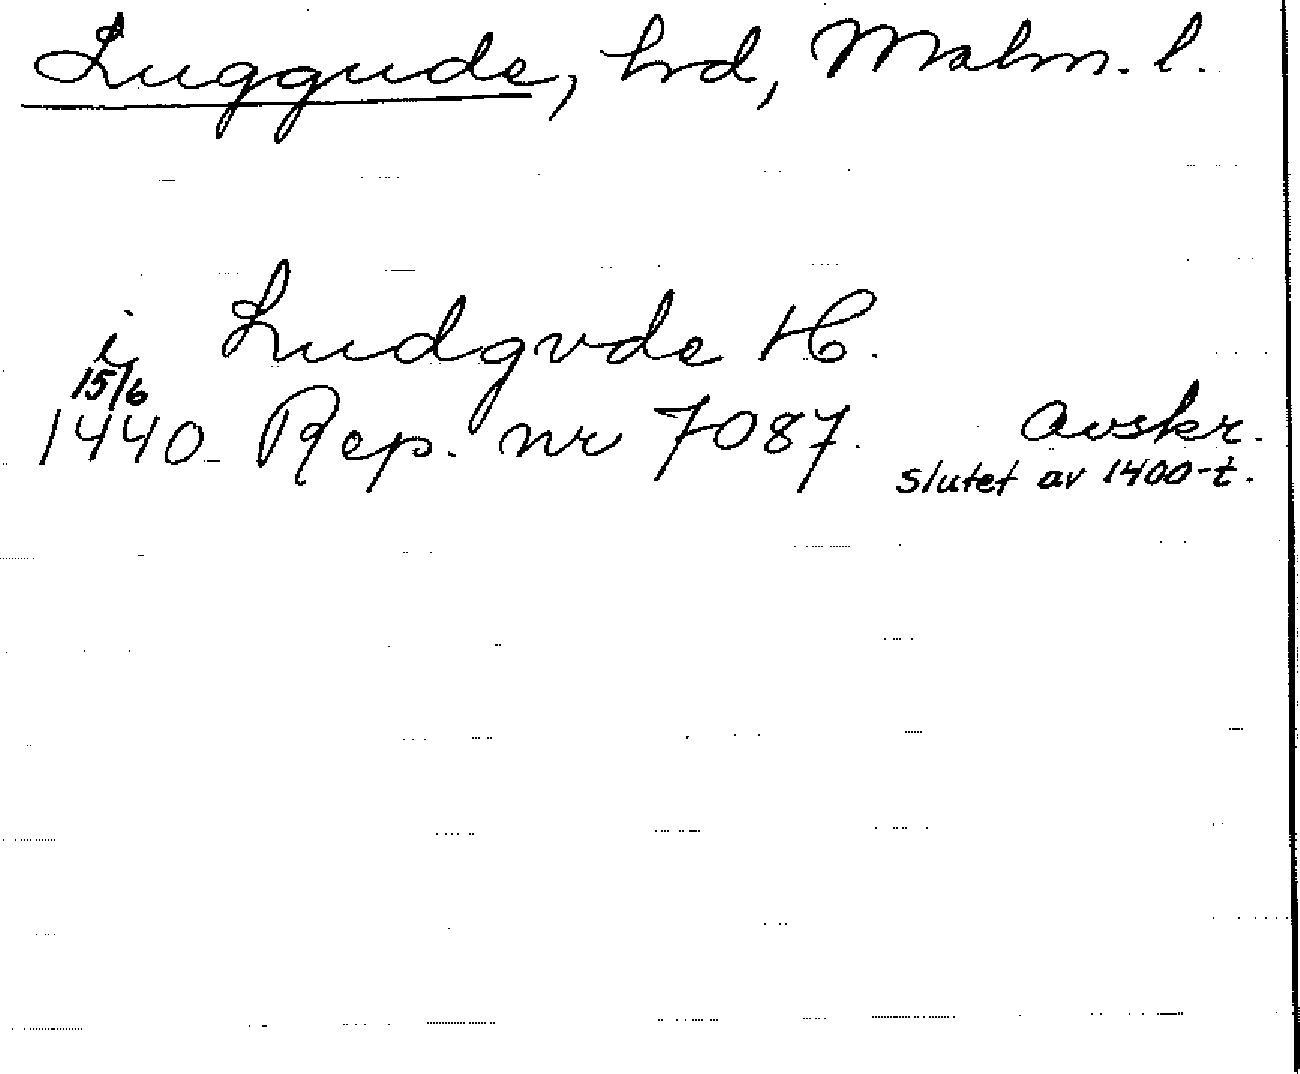 Luggude, hrd, Malm. l.
i Ludgvde H.
15/6
1440 Rep. nr 7087. Avskr.
slutet av 1400-t.